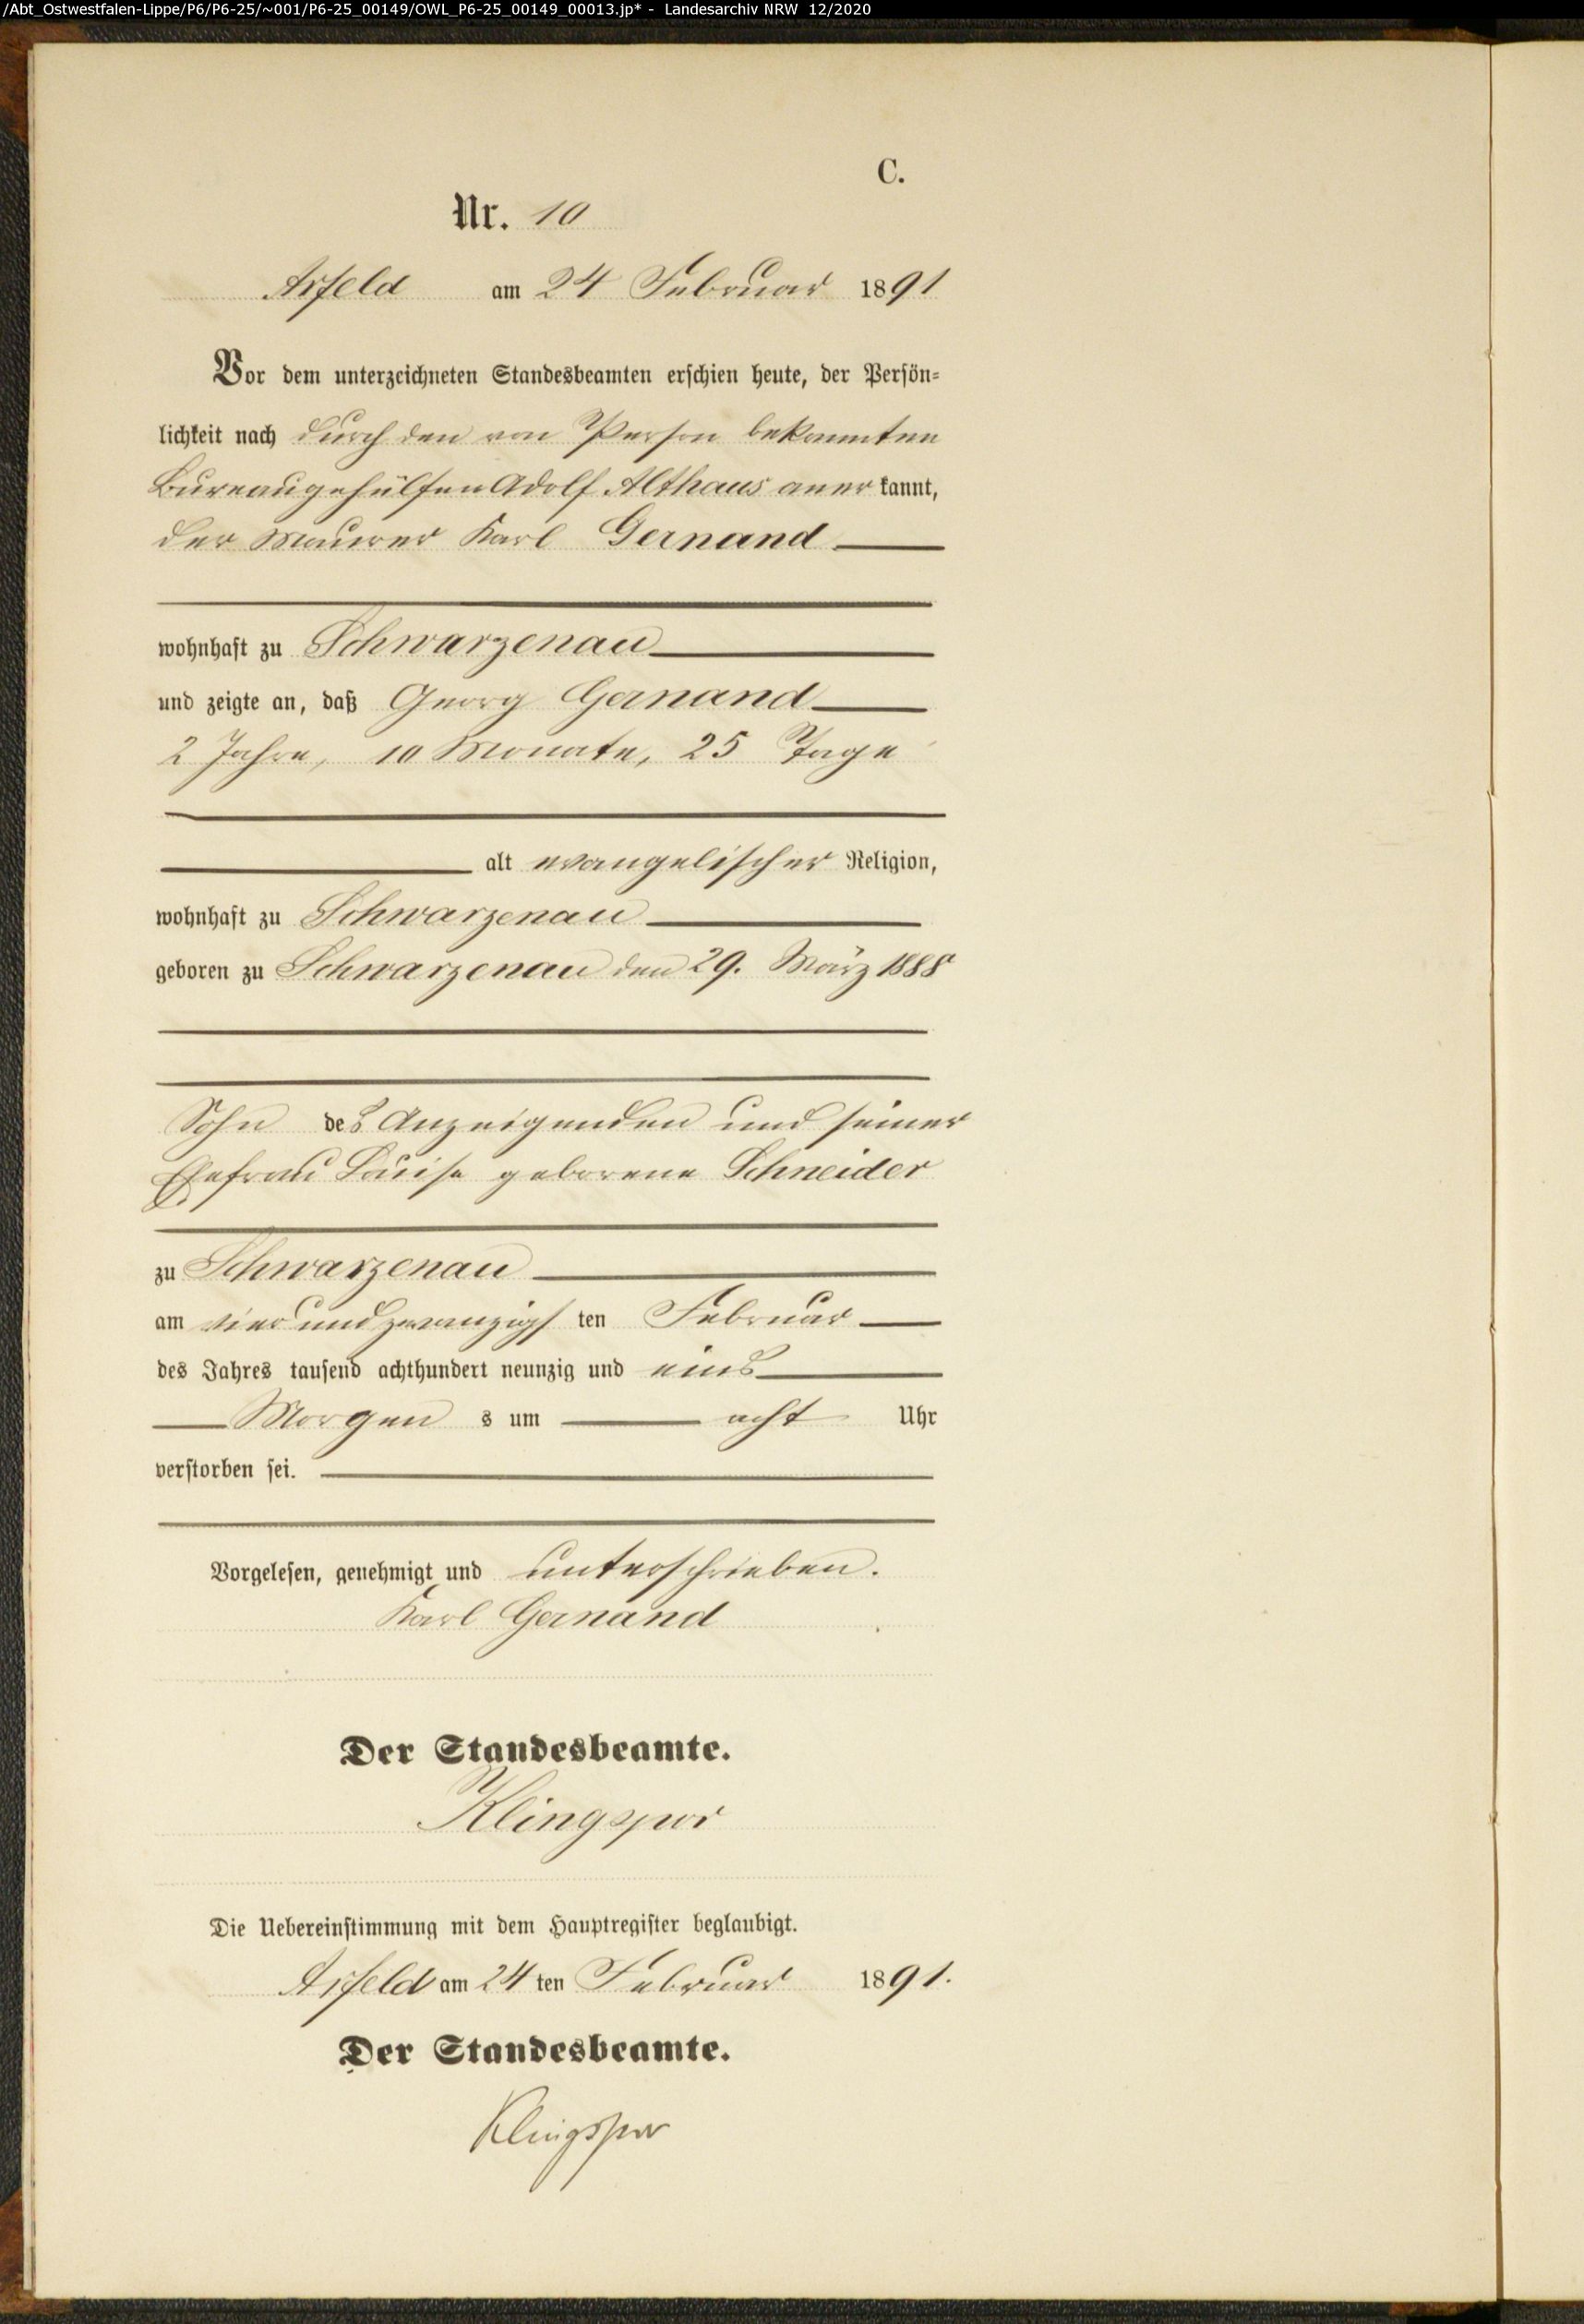 /Abt_Ostwestfalen-Lippe/P6/P6-25/~001/P6-25_00149/OWL_P6-25_00149_00013.jp* - Landesarchiv NRW 12/2020
C.
Nr. 10
Arfeld am 24 Februar 1891
Vor dem unterzeichneten Standesbeamten erschien heute, der Persön-
lichkeit nach durch den von Person bekannten
Bureaugehülfen Adolf Althaus anerkannt,
der Maurer Karl Gernand
wohnhaft zu Schwarzenau
und zeigte an, daß Georg Gernand
2 Jahre, 10 Monate, 25 Tage
alt evangelischer Religion,
wohnhaft zu Schwarzenau
geboren zu Schwarzenau den 29. März 1888
Sohn des Anzeigenden und seiner
Ehefrau Louise geborene Schneider
zu Schwarzenau
am vier und zwanzigsten Februar
des Jahres tausend achthundert neunzig und eins
Morgens um acht Uhr
verstorben sei.
Vorgelesen, genehmigt und unterschrieben.
Karl Gernand
Der Standesbeamte.
Klingspor
Die Uebereinstimmung mit dem Hauptregister beglaubigt.
Arfeld am 24ten Februar 1891.
Der Standesbeamte.
Klingspor